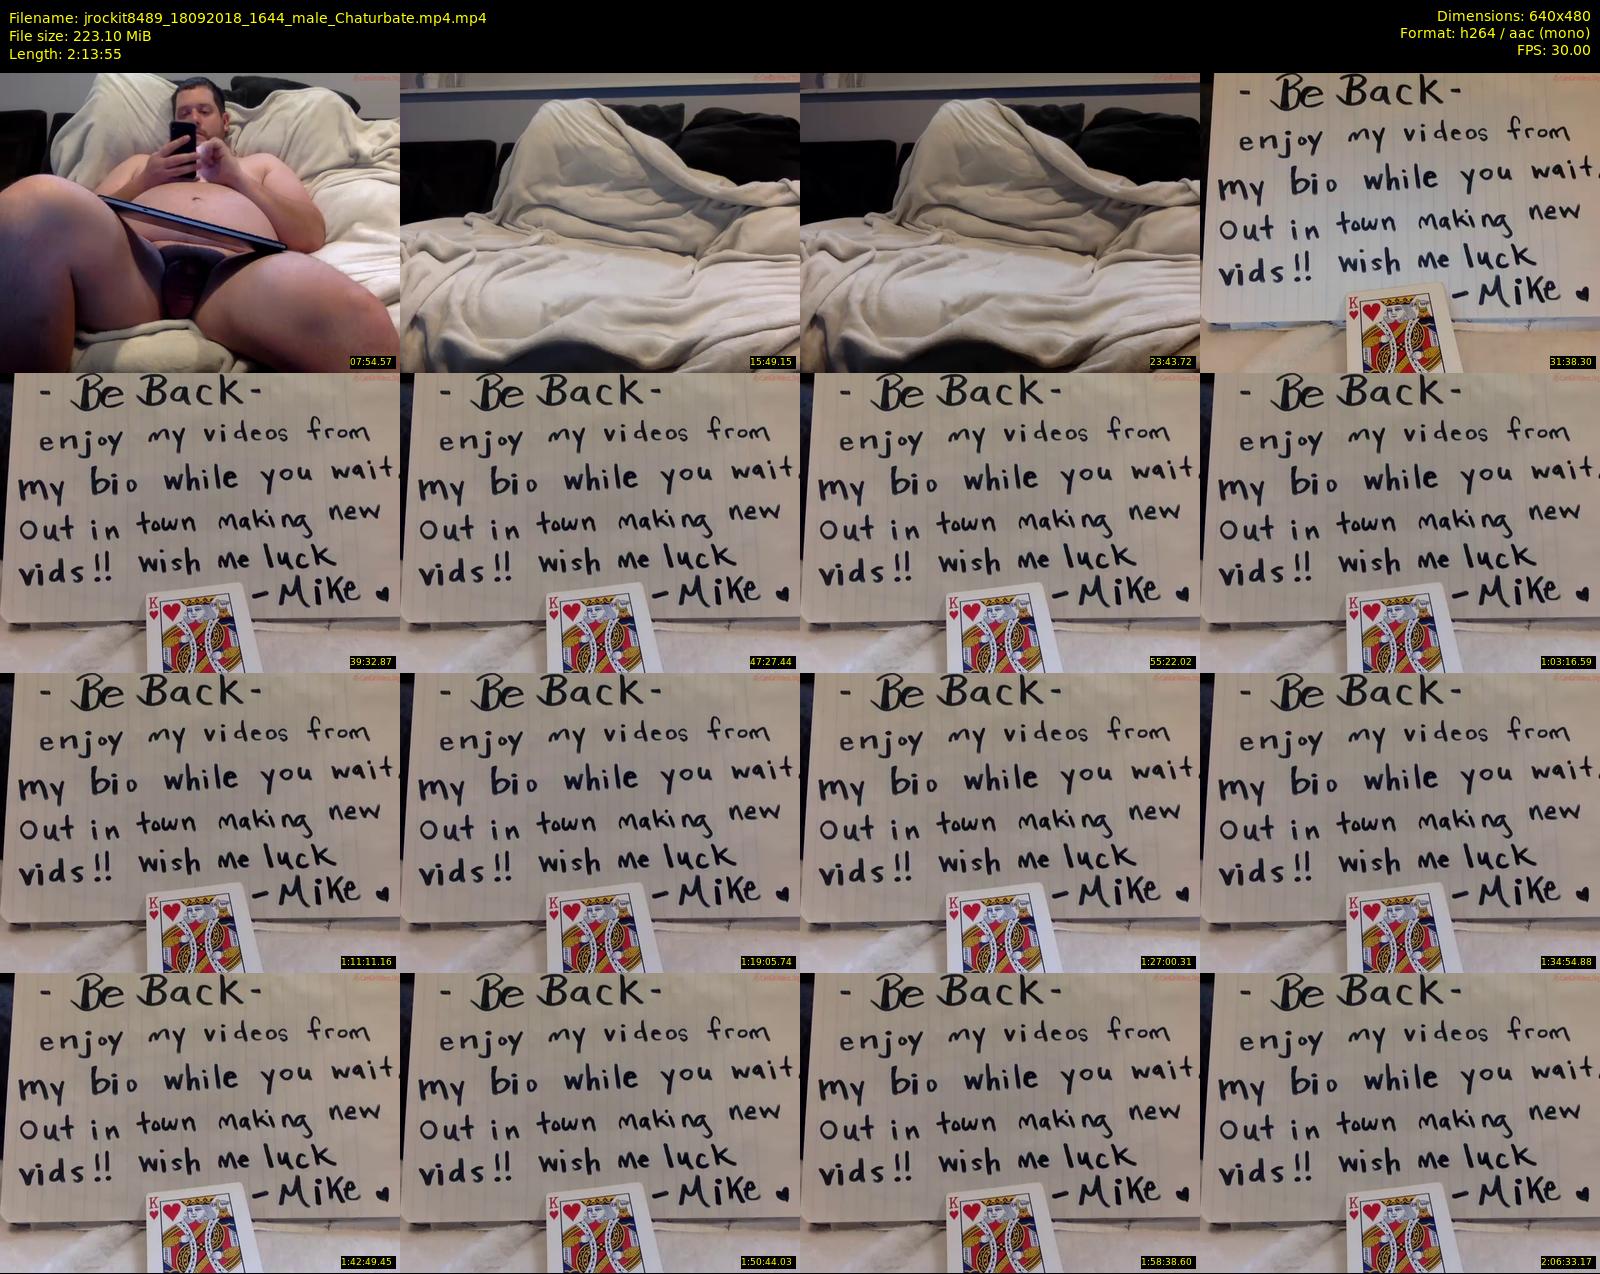 Filename: jrockit8489_18092018_1644_male_Chaturbate.mp4.mp4
File size: 223.10 MiB
Length: 2:13:55
Dimensions: 640x480
Format: h264 / aac (mono)
FPS: 30.00
07:54.57
15:49.15
23:43.72
- Be Back -
enjoy my videos from
my bio while you wait.
Out in town making new
vids!! wish me luck
- Mike ♥
K
31:38.30
- Be Back -
enjoy my videos from
my bio while you wait.
Out in town making new
vids!! wish me luck
- Mike ♥
K
39:32.87
- Be Back -
enjoy my videos from
my bio while you wait.
Out in town making new
vids!! wish me luck
- Mike ♥
K
47:27.44
- Be Back -
enjoy my videos from
my bio while you wait.
Out in town making new
vids!! wish me luck
- Mike ♥
K
55:22.02
- Be Back -
enjoy my videos from
my bio while you wait.
Out in town making new
vids!! wish me luck
- Mike ♥
K
1:03:16.59
- Be Back -
enjoy my videos from
my bio while you wait.
Out in town making new
vids!! wish me luck
- Mike ♥
K
1:11:11.16
- Be Back -
enjoy my videos from
my bio while you wait.
Out in town making new
vids!! wish me luck
- Mike ♥
K
1:19:05.74
- Be Back -
enjoy my videos from
my bio while you wait.
Out in town making new
vids!! wish me luck
- Mike ♥
K
1:27:00.31
- Be Back -
enjoy my videos from
my bio while you wait.
Out in town making new
vids!! wish me luck
- Mike ♥
K
1:34:54.88
- Be Back -
enjoy my videos from
my bio while you wait.
Out in town making new
vids!! wish me luck
- Mike ♥
K
1:42:49.45
- Be Back -
enjoy my videos from
my bio while you wait.
Out in town making new
vids!! wish me luck
- Mike ♥
K
1:50:44.03
- Be Back -
enjoy my videos from
my bio while you wait.
Out in town making new
vids!! wish me luck
- Mike ♥
K
1:58:38.60
- Be Back -
enjoy my videos from
my bio while you wait.
Out in town making new
vids!! wish me luck
- Mike ♥
K
2:06:33.17